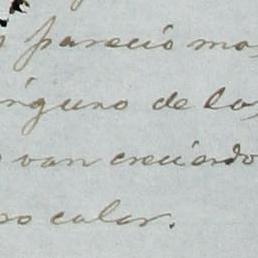 pareció mo
inguno de los
van creciendo
ro calor.